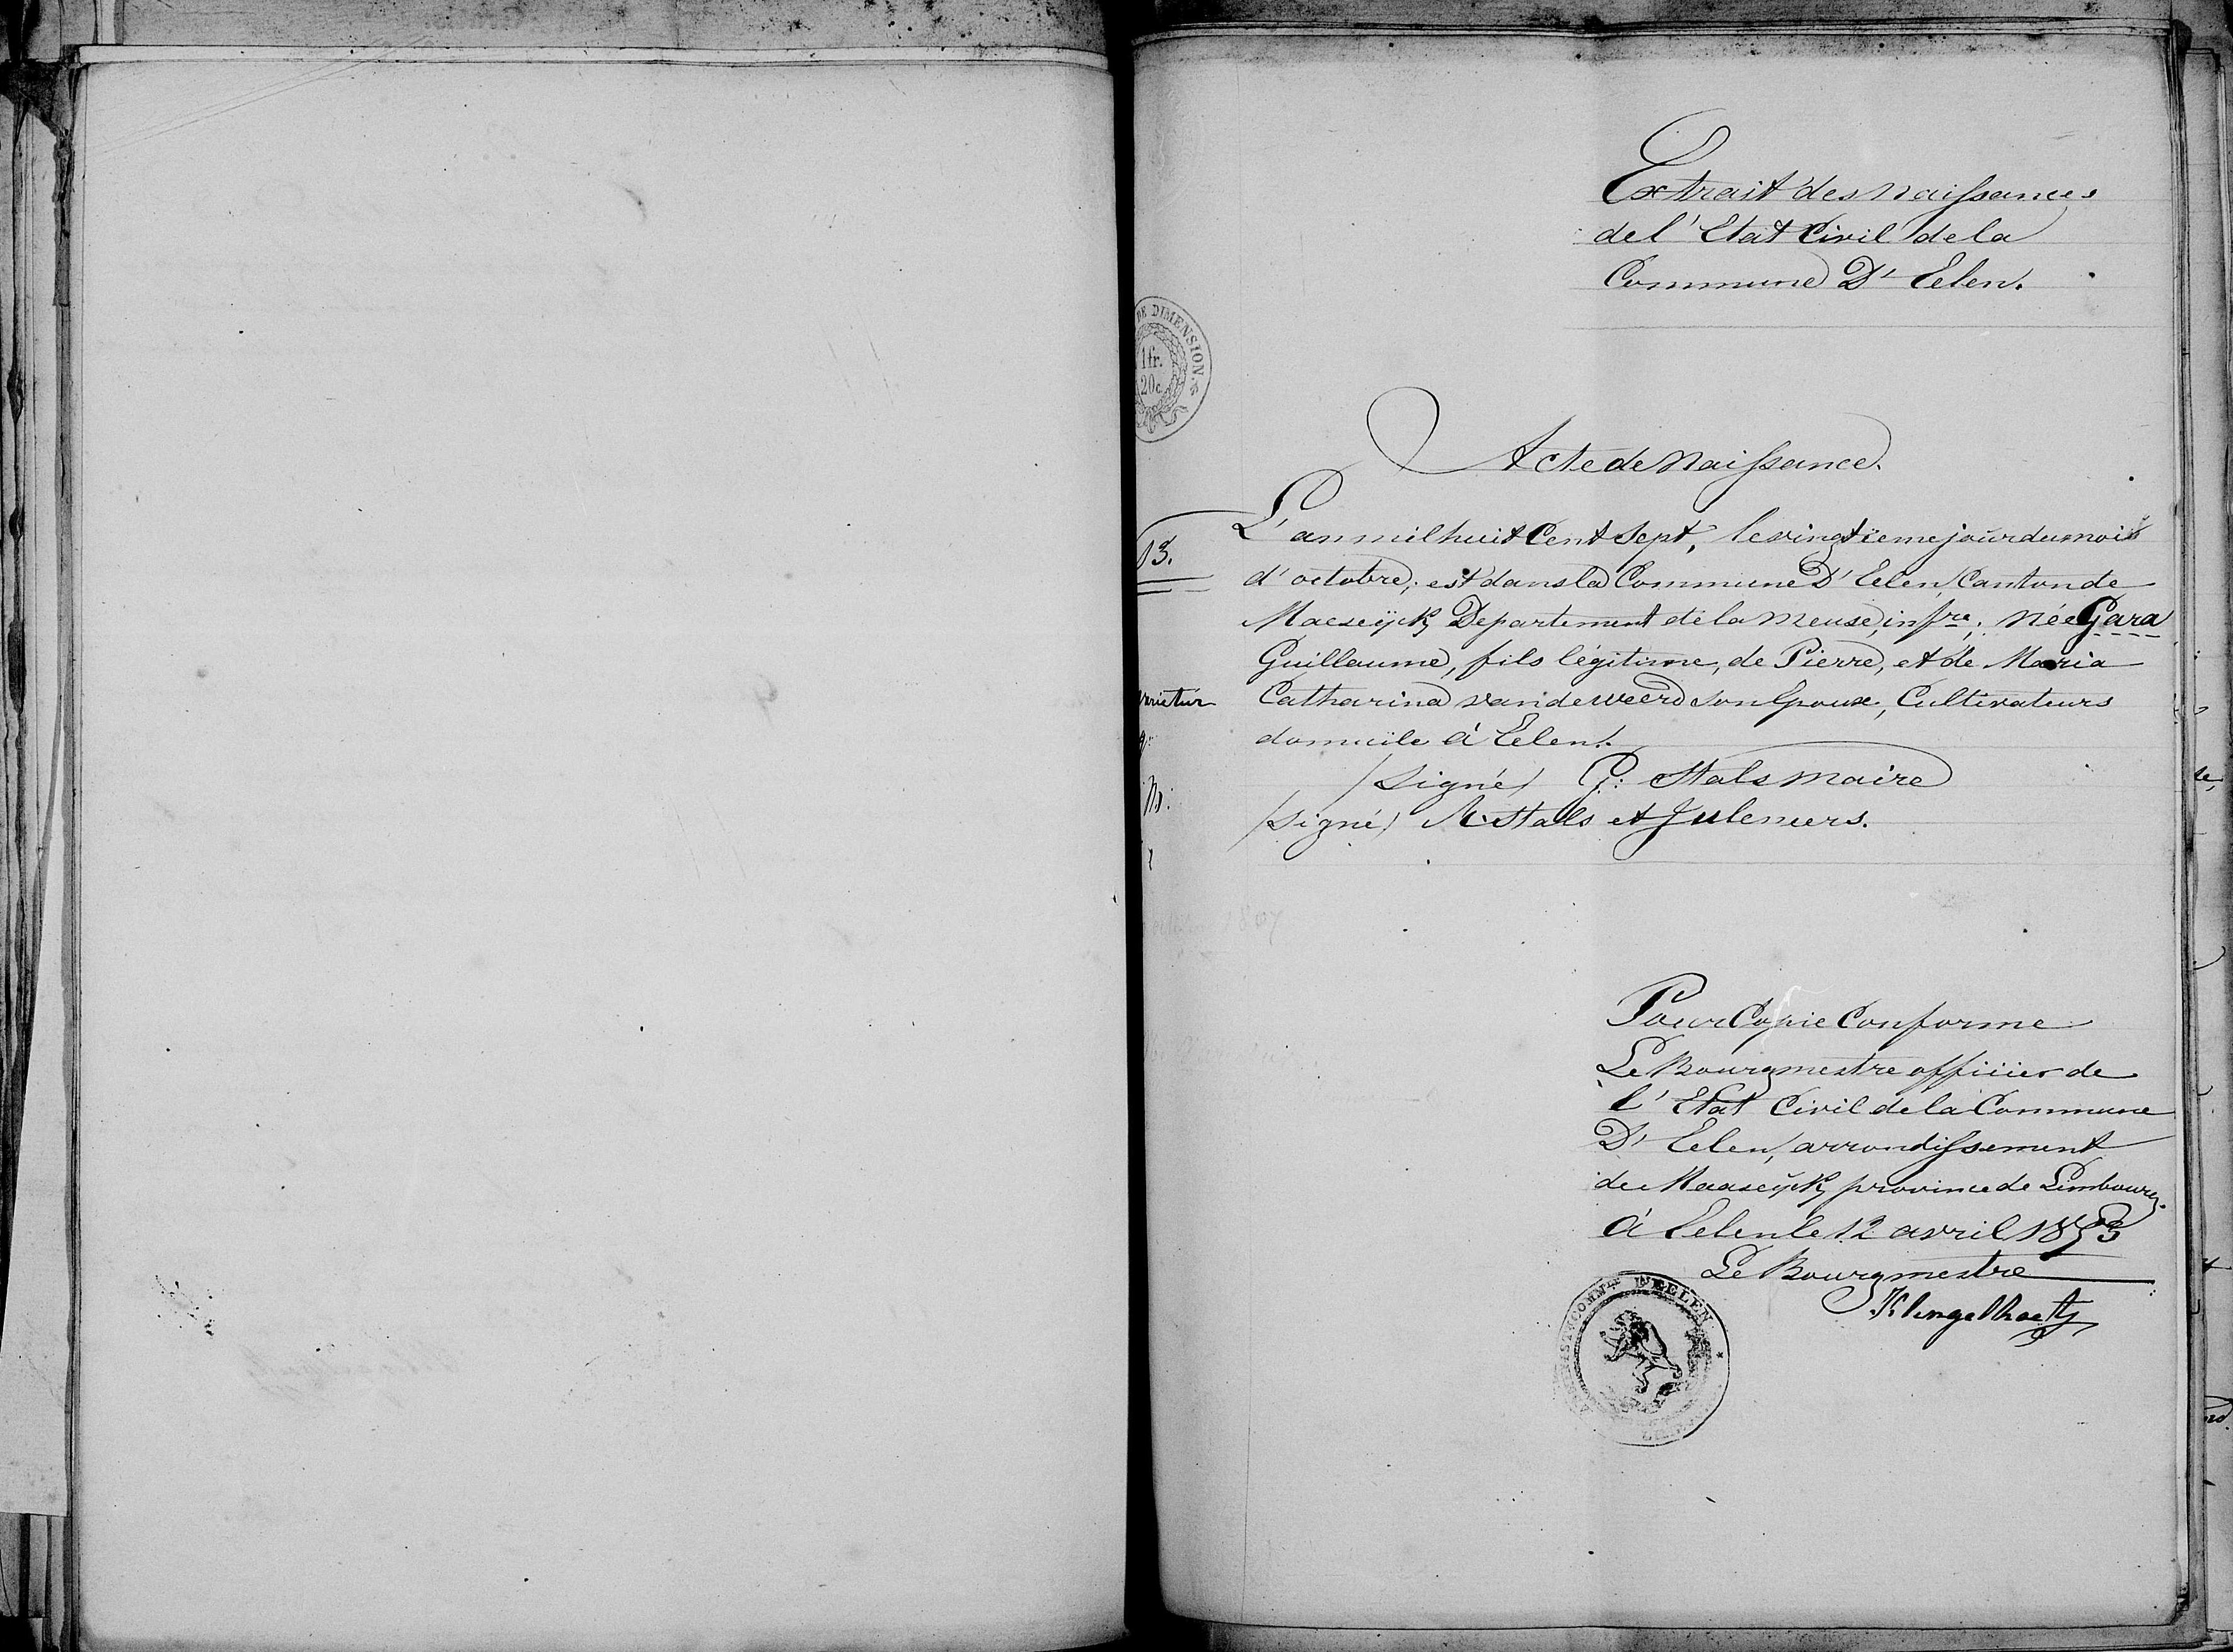 Extrait des Naissances
de l'Etat Civil de la
Commune D'Eelen.
DE DIMENSION.
1fr.
20c.
Acte de Naissance.
L'an mil huit Cent Sept, le vingtïeme jour du mois
d'octobre; est dans la Commune D'Eelen, Canton de
Maeseÿck Departement de la Meuse, infre; Née Gara
Guillaume, fils légitime, de Pierre, et de Maria
Catharina Vandeweerd son Epouse, Cultivateurs
domicile à Eelen.
/Signé/ G: Stals Maire
/Signé/ M. Stals et Juleneers.
13.
varietur
Pour Copie Conforme
Le Bourgmestre officier de
l'Etat Civil de la Commune
D'Eelen, arrondissement
de Maaseÿck, province de Limbourg.
à Eelen le 12 avril 1853
Le Bourgmestre
D'EELEN